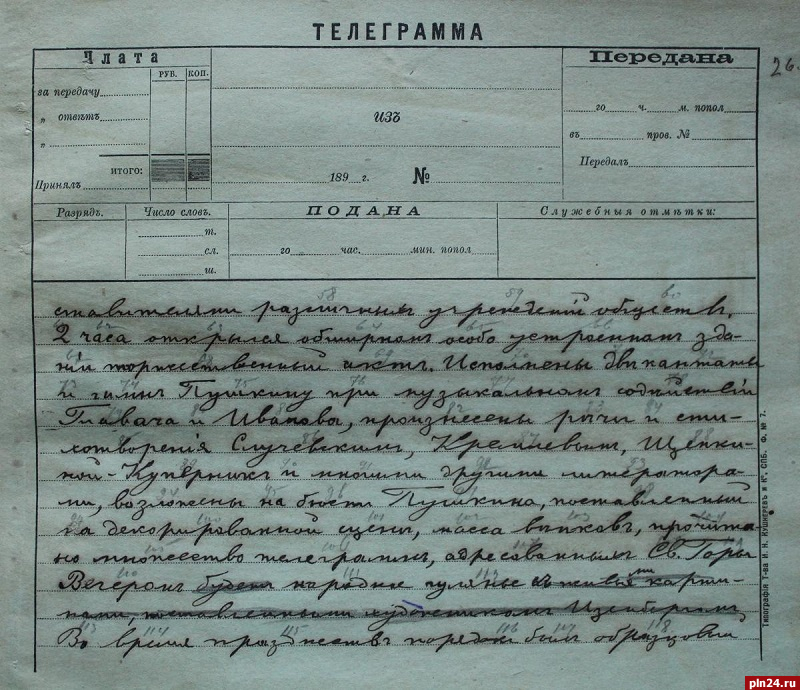 ТЕЛЕГРАММА
Члата
РУБ. КОП.
за передачу
„ отвѣтъ
„
ИТОГО:
Принялъ
изъ
189 г. №
Передана
26.
го ч. м. попол
въ пров. №
Передалъ
Разрядъ.
Число словъ.
т.
сл.
ш.
ПОДАНА
го час. мин. попол
Служебныя отмѣтки:
ставителями различныхъ учрежденій обществъ.
2 часа открылся обширномъ особо устроенномъ зда-
ніи торжественный актъ. Исполнены двѣ кантаты
и гимнъ Пушкину при музыкальномъ содѣйствіи
Главача и Иванова, произнесены рѣчи и сти-
хотворенія Случевскимъ, Кремлевымъ, Щепки-
ной-Куперникъ и многими другими литератора-
ми, возложены на бюстъ Пушкина, поставленный
на декорированной сценѣ, масса вѣнковъ, прочита-
но множество телеграммъ, адресованныхъ Св. Горы
Вечеромъ будетъ народное гулянье съ живыми карти-
нами, поставленными художникомъ Изенбергомъ
Во время празднествъ порядокъ былъ образцовый
типографія Т-ва И. Н. КУШНЕРЕВЪ и Кº, СПБ. Ф. № 7.
pln24.ru